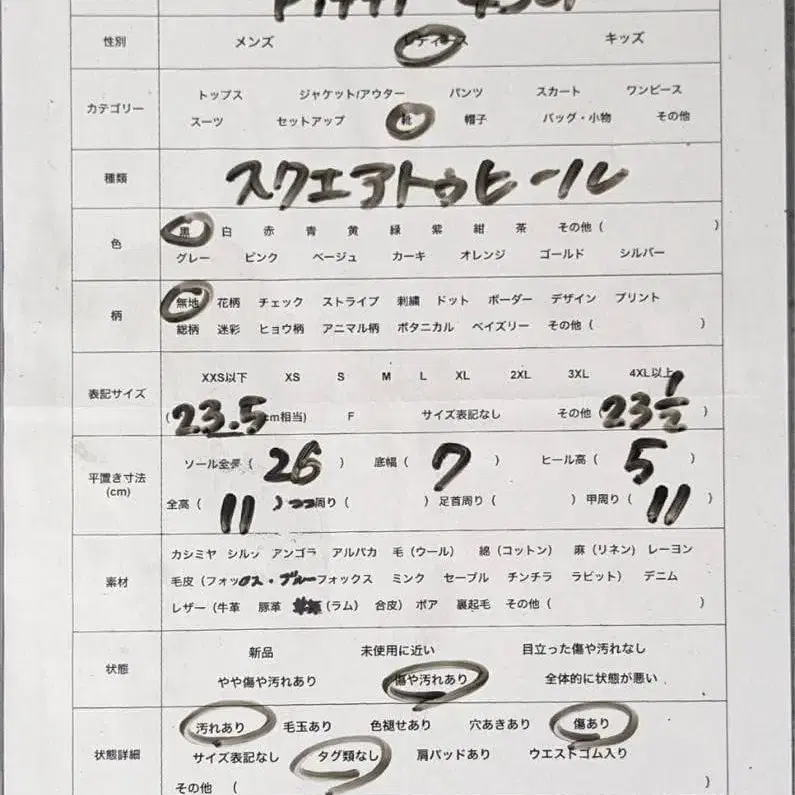 性別 メンズ レディース キッズ
カテゴリー トップス ジャケット/アウター パンツ スカート ワンピース
スーツ セットアップ 靴 帽子 バッグ・小物 その他
種類 スクエアトゥヒール
色 黒 白 赤 青 黄 緑 紫 紺 茶 その他 ( )
グレー ピンク ベージュ カーキ オレンジ ゴールド シルバー
柄 無地 花柄 チェック ストライプ 刺繍 ドット ボーダー デザイン プリント
総柄 迷彩 ヒョウ柄 アニマル柄 ボタニカル ペイズリー その他 ( )
表記サイズ XXS以下 XS S M L XL 2XL 3XL 4XL以上
(23.5cm相当) F サイズ表記なし その他 (23 1/2)
平置き寸法 (cm) ソール全長 ( 26 ) 底幅 ( 7 ) ヒール高 ( 5 )
全高 ( 11 ) つつ周り ( ) 足首周り ( ) 甲周り ( 11 )
素材 カシミヤ シルク アンゴラ アルパカ 毛 (ウール) 綿 (コットン) 麻 (リネン) レーヨン
毛皮 (フォックス・ブルーフォックス ミンク セーブル チンチラ ラビット) デニム
レザー (牛革 豚革 (ラム) 合皮) ボア 裏起毛 その他 ( )
状態 新品 未使用に近い 目立った傷や汚れなし
やや傷や汚れあり 傷や汚れあり 全体的に状態が悪い
状態詳細 汚れあり 毛玉あり 色褪せあり 穴あきあり 傷あり
サイズ表記なし タグ類なし 肩パッドあり ウエストゴム入り
その他 ( )